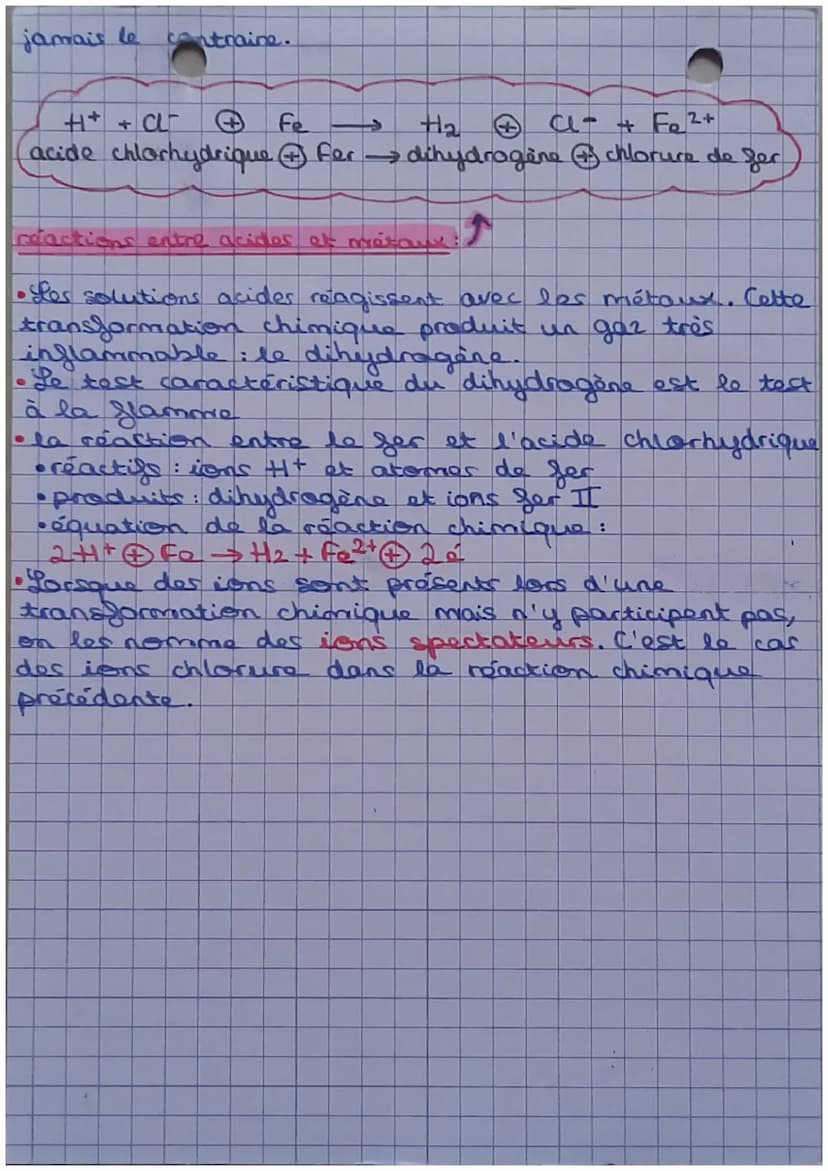 jamais le contraire.
H+ + Cl- ⊕ Fe → H2 ⊕ Cl- + Fe2+
acide chlorhydrique ⊕ fer → dihydrogène ⊕ chlorure de fer
réactions entre acides et métaux : ↑
• Les solutions acides réagissent avec les métaux. Cette
transformation chimique produit un gaz très
inflammable : le dihydrogène.
• Le test caractéristique du dihydrogène est le test
à la flamme
• la réaction entre le fer et l'acide chlorhydrique
• réactifs : ions H+ et atomes de fer
• produits : dihydrogène et ions fer II
• équation de la réaction chimique :
2H+ ⊕ Fe → H2 + Fe2+ ⊕
• Lorsque des ions sont présents lors d'une
transformation chimique mais n'y participent pas,
on les nomme des ions spectateurs. C'est le cas
des ions chlorure dans la réaction chimique
précédente.